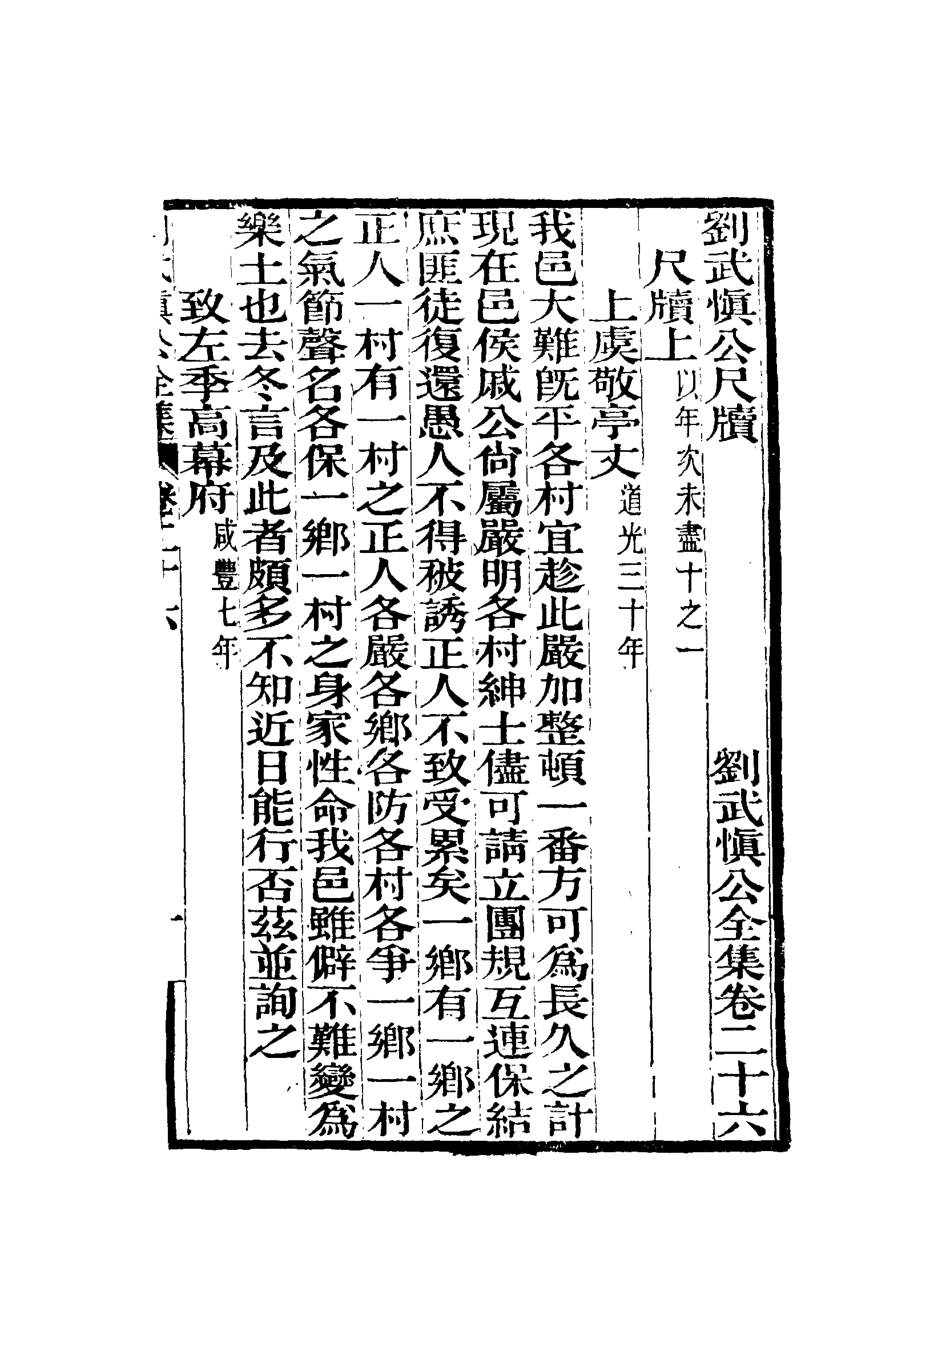 劉武愼公尺牘　劉武愼公全集卷二十六
尺牘上以年次未盡十之一
上虞敬亭丈道光三十年
我邑大難旣平各村宜趁此嚴加整頓一番方可爲長久之計
現在邑侯戚公尙屬嚴明各村紳士儘可請立團規互連保結
庶匪徒復還愚人不得被誘正人不致受累矣一鄉有一鄉之
正人一村有一村之正人各嚴各鄉各防各村各爭一鄉一村
之氣節聲名各保一鄉一村之身家性命我邑雖僻不難變爲
樂土也去冬言及此者頗多不知近日能行否茲並詢之
致左季高幕府咸豐七年
劉武愼公全集　卷二十六　一